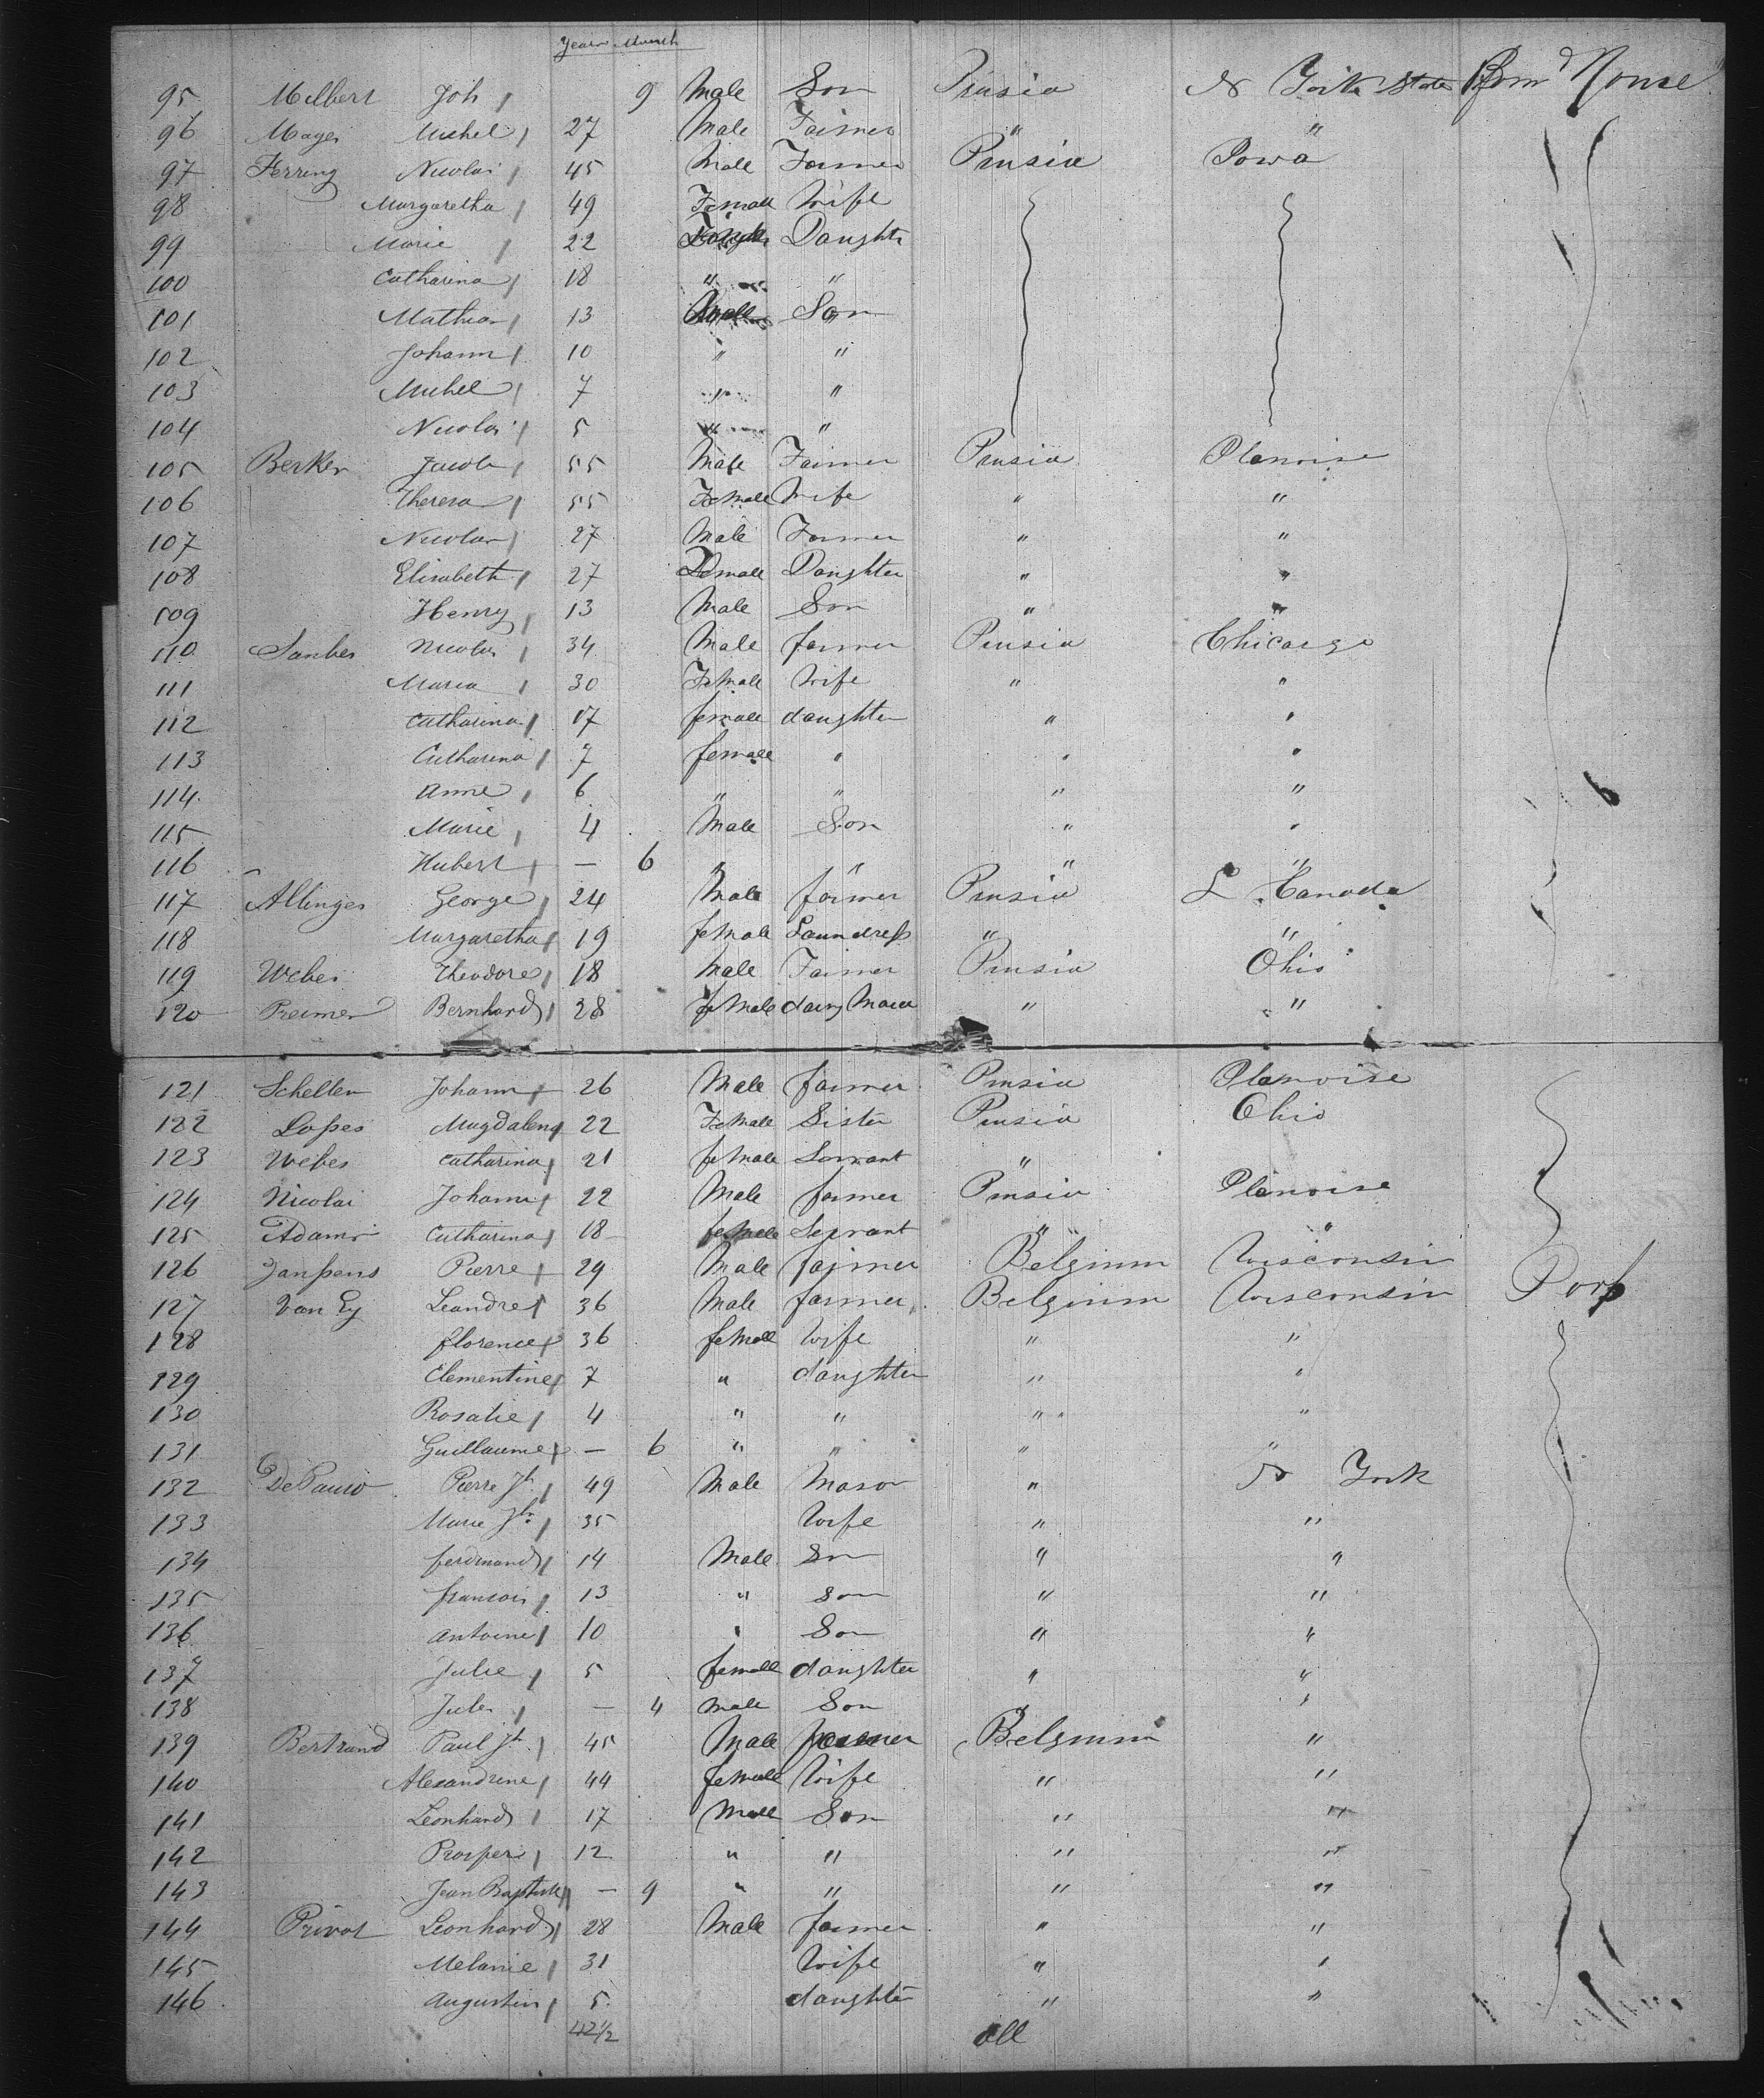 Years Month
95 Milbert Joh 9 Male Son Prusia N York State
96 Mayer Mishel 27 Male Farmer " "
97 Ferring Nicolai 45 Male Farmer Prusia Iowa
98 Margaretha 49 Female Wife
99 Marie 22 Daughtr
100 Catharina 18 " "
101 Mathias 13 Male Son
102 Johann 10 " "
103 Michel 7 " "
104 Nicolas 5 " "
105 Berker Jacob 55 Male Farmer Prusia Ilenoise
106 Theresa 55 Female Wife " "
107 Nicolas 27 Male Farmer " "
108 Elisabeth 27 Female Daughter " "
109 Henry 13 Male Son " "
110 Sanber Nicolas 34 Male farmer Prusia Chicargo
111 Maria 30 Female Wife " "
112 Catharina 17 female daughter " "
113 Catharina 7 female " " "
114 Anne 6 " " " "
115 Marie 4 Male Son " "
116 Hubert — 6 " " " "
117 Allinger George 24 Male farmer Prusia L Canada
118 Margaretha 19 female Laundress " "
119 Weber Theodore 18 Male Farmer Prusia Ohio
120 Preimer Bernhard 38 female " "
121 Schellen Johann 26 Male farmer Prusia Ilenoise
122 Magdalena 22 Female Sister Prusia Ohio
123 Weber Catharina 21 female Servant "
124 Nicolai Johann 22 Male farmer Prusia Ilenoise
125 Adami Catharina 18 female Servant " "
126 Janssens Pierre 29 Male farmer Belgium Wisconsin
127 Van Ey Leandre 36 Male farmer Belgium Wisconsin
128 florence 36 female Wife " "
129 Clementine 7 " daughter " "
130 Rosalie 4 " " " "
131 Guillaume — 6 " " " "
132 De Pauw Pierre Jh 49 Male Mason " N York
133 Marie 35 Wife " "
134 ferdinand 14 Male Son " "
135 francois 13 " Son " "
136 Antoine 10 " Son " "
137 Julie 5 female daughter " "
138 Jules — 4 male Son "
139 Bertrand Paul Jh 45 Male farmer Belgium "
140 Alexandrine 44 female Wife " "
141 Leonhard 17 Male Son " "
142 Prosper 12 " " " "
143 Jean Baptiste — 9 " " " "
144 Privot Leonhard 28 Male farmer " "
145 Melanie 31 Wife " "
146 Augustin 5 daughter " "
42 1/2 all